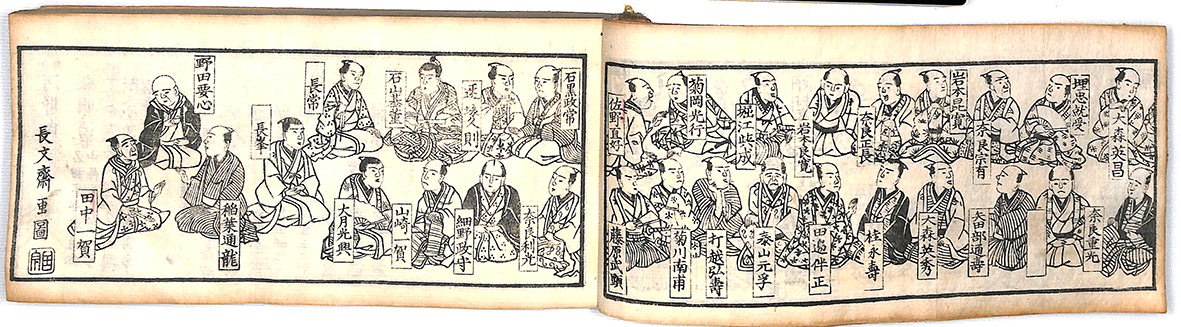 大森英昌
埋忠就受
奈良宗有
岩本昆寛
奈良正長
岩本良寛
堀江興成
菊岡光行
佐野直好
奈良重光
矢田部通壽
大森英秀
桂永壽
田邉伴正
泰山元孚
打越弘壽
菊川南甫
藤原武
石黒政常
石山基董
長常
長峯
野田要心
奈良利光
細野政守
山崎一賀
大月光興
稲葉通龍
田中一賀
長文齋画圖